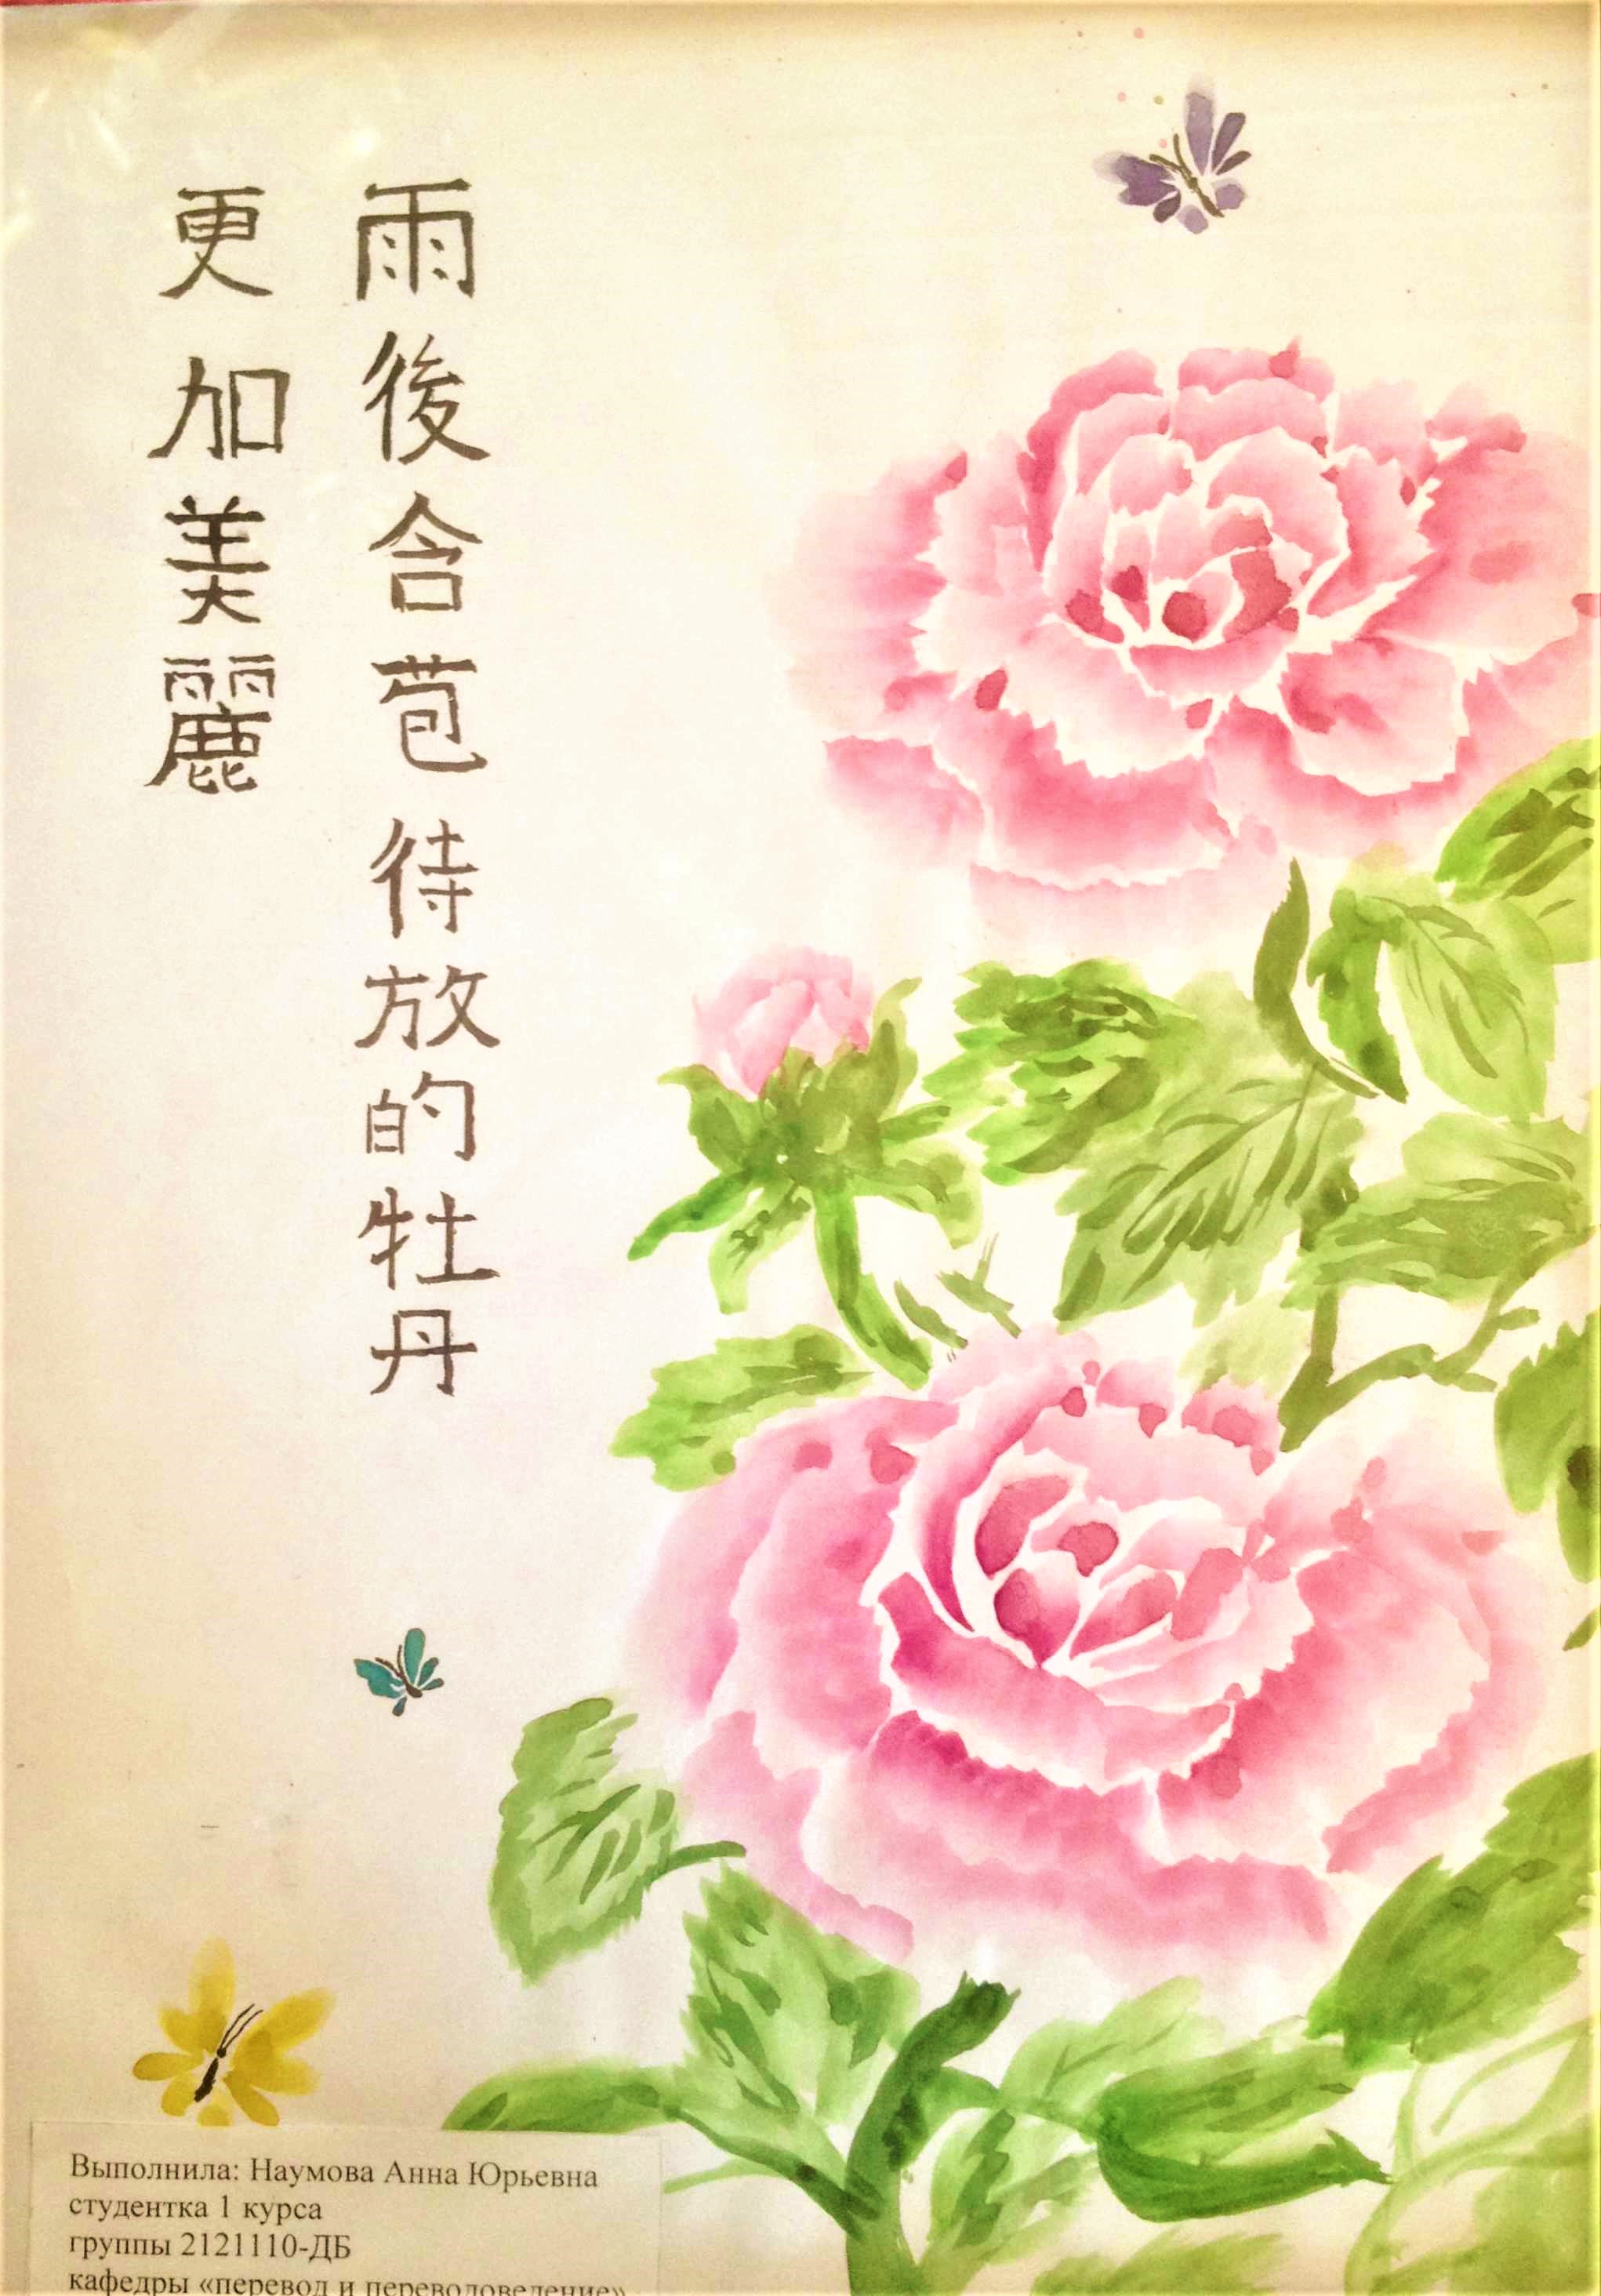 雨後含苞待放的牡丹
更加美麗
Выполнила: Наумова Анна Юрьевна
студентка 1 курса
группы 2121110-ДБ
кафедры «перевод и переводоведение»